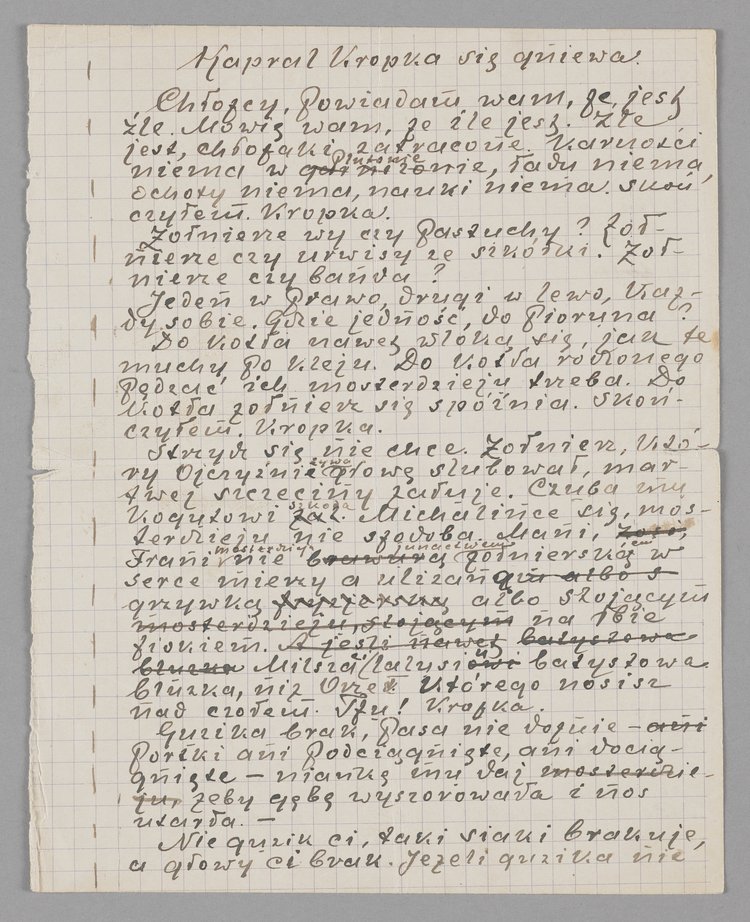 Kapral Kropka się gniewa.
Chłopcy, powiadam wam, że jest
źle. Mówię wam, że źle jest. Źle
jest, chłopaki zatracone. Karności
niema w garnizonie plutonie, ładu niema,
ochoty niema, nauki niema. Skoń-
czyłem. Kropka.
Żołnierze wy czy pastuchy? Żoł-
nierze czy urwisy ze szkółki. Żoł-
nierze czy banda?
Jeden w prawo, drugi w lewo, każ-
dy sobie. Gdzie jedność, do pioruna?
Do kotła nawet wloką się, jak te
muchy po kleju. Do kotła rodzonego
pędzać ich mosterdzieju trzeba. Do
kotła żołnierz się spóźnia. Skoń-
czyłem. Kropka.
Strzyc się nie chce. Żołnierz, któ-
ry Ojczyźnie żywą głowę ślubował, mar-
twej szczeciny żałuje. Czuba mu
kogutowi żal szkoda. Michalince się, mos-
terdzieju nie spodoba, Mani, Zosi,
Frani mosterdzieju nie brawurą junactwem żołnierskiem w
serce mierzy a ulizaną albo s
grzywką fryzjerską albo stojącym
mosterdzieju, stojącym na łbie
fiokiem. A jeśli nawet batystowa
bluzka Milsza lalusiowi batystowa
bluzka, niż Orzeł którego nosisz
nad czołem. Tfu! Kropka.
Guzika brak, pasa nie dopnie – ani
portki ani podciągnięte, ani docią-
gnięte – niańkę mu daj mosterdzie-
ju, żeby gębę wyszorowała i nos
utarła. –
Nie guzik ci, taki siaki brakuje,
a głowy ci brak. Jeżeli guzika nie